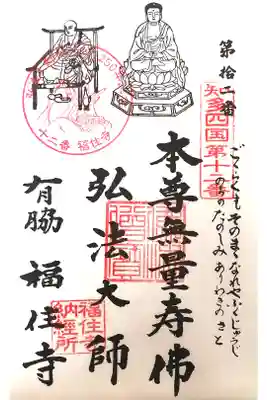 第拾二番
知多四国第十二番
ごくらくも そのまゝなれや ふくじゅうじ
のちのたのしみ ありわきのさと
本尊無量寿佛
弘法大師
有脇 福住寺
福住寺
納経所
十二番 福住寺